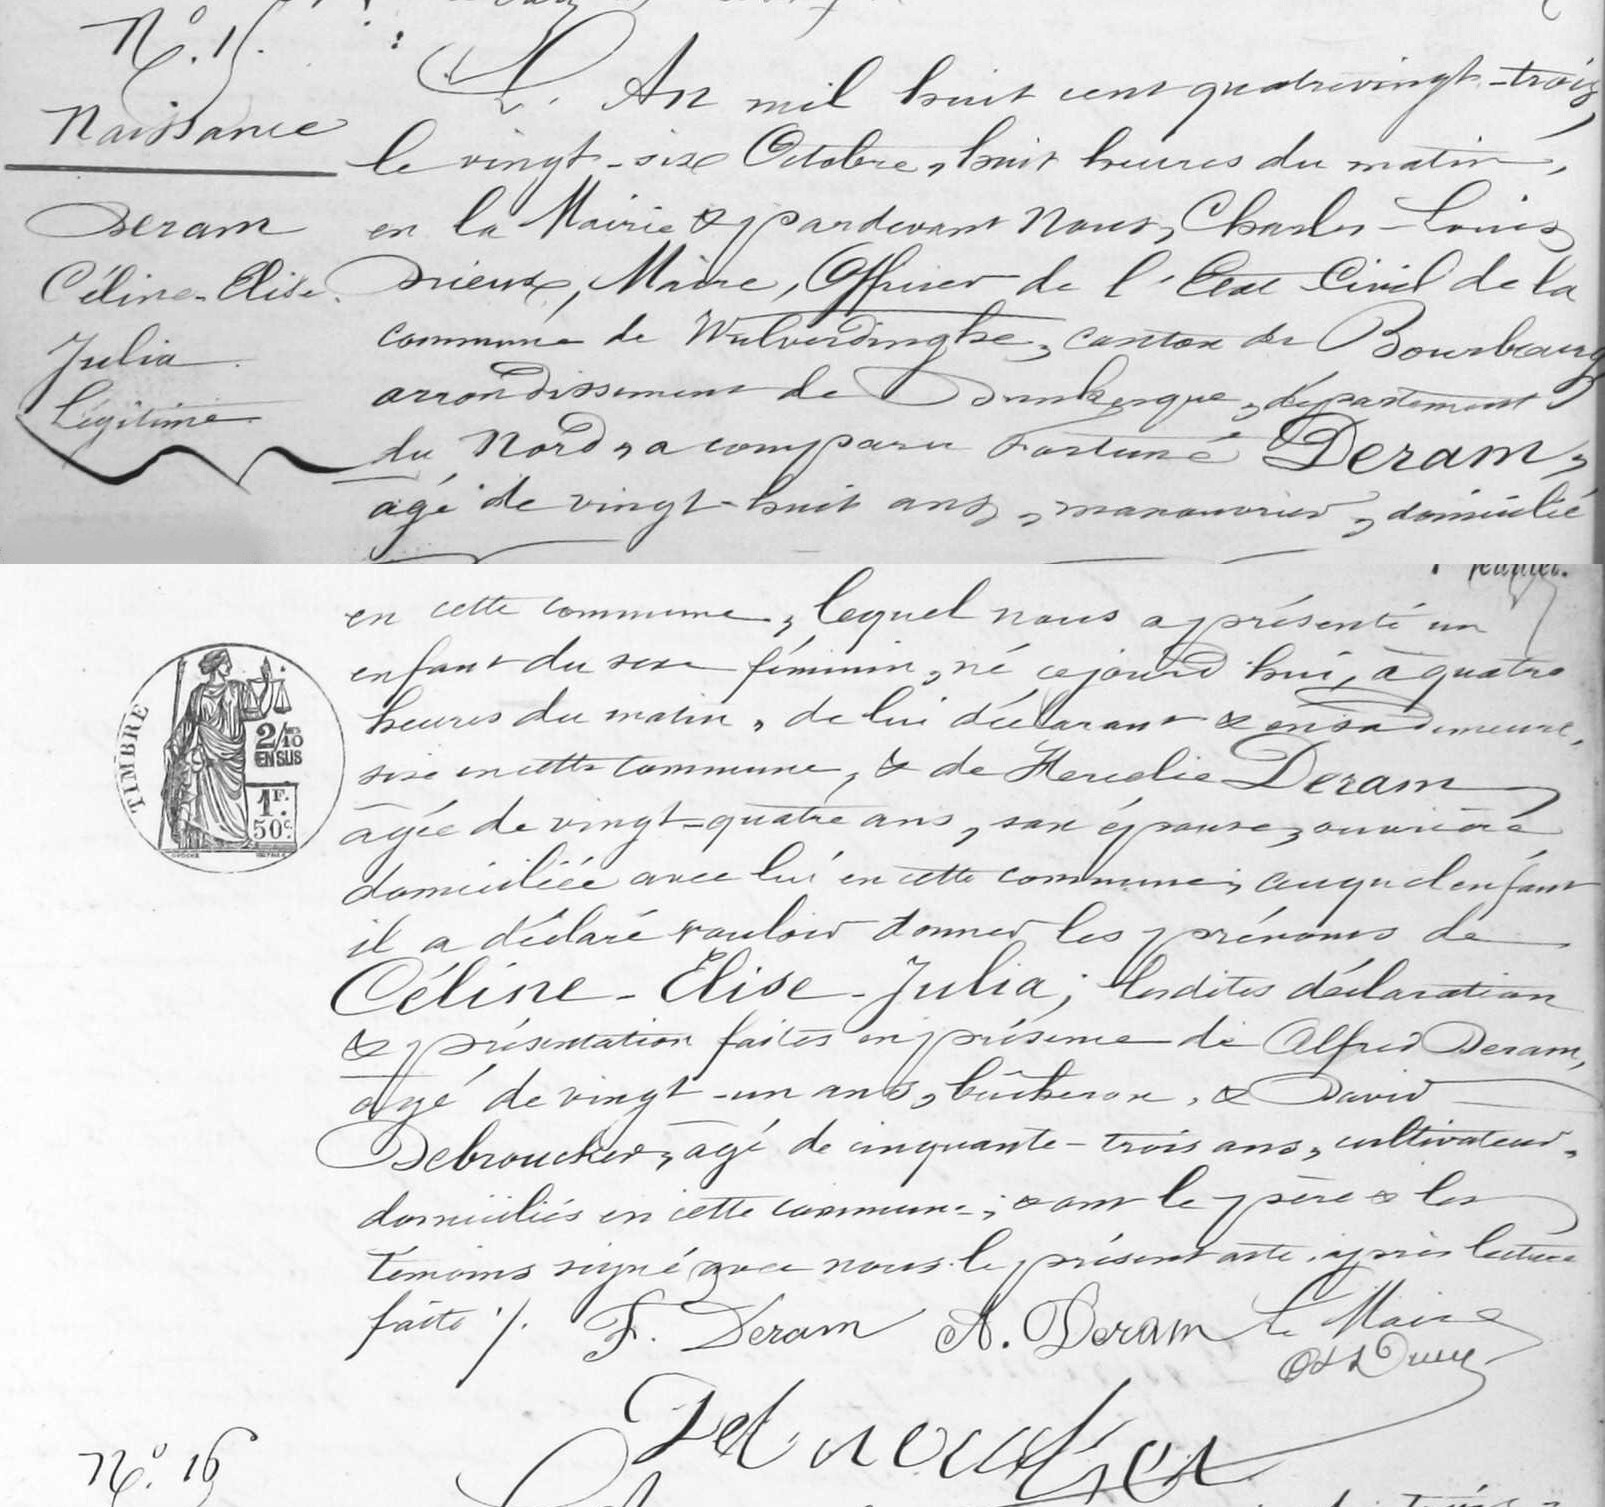 N° 15.
Naissance
Deram
Céline-Elise
Julia
Légitime
L'An mil huit cent quatrevingt-trois,
le vingt-six Octobre, huit heures du matin,
en la Mairie & pardevant Nous, Charles-Louis
Drieux, Maire, Officier de l'Etat Civil de la
commune de Wulverdinghe, canton de Bourbourg
arrondissement de Dunkerque, département
du Nord, a comparu Fortuné Deram,
âgé de vingt-huit ans, manouvrier, domicilié
en cette commune, lequel nous a présenté un
enfant du sexe féminin, né cejourd'hui, à quatre
heures du matin, de lui déclarant & en sa demeure,
sise en cette commune, & de Herelie Deram
âgée de vingt-quatre ans, son épouse, ouvrière
domiciliée avec lui en cette commune, auquel enfant
il a déclaré vouloir donner les prénoms de
Céline-Elise-Julia; lesdites déclaration
& présentation faites en présence de Alfred Deram,
âgé de vingt-un ans, bûcheron, & David
Debroucker, âgé de cinquante-trois ans, cultivateur,
domiciliés en cette commune; & ont le père & les
témoins signé avec nous le présent acte, après lecture
faite ./.
F. Deram A. Deram Le Maire
Debroucker
TIMBRE
2/10 EN SUS
1F. 50c.
N° 16